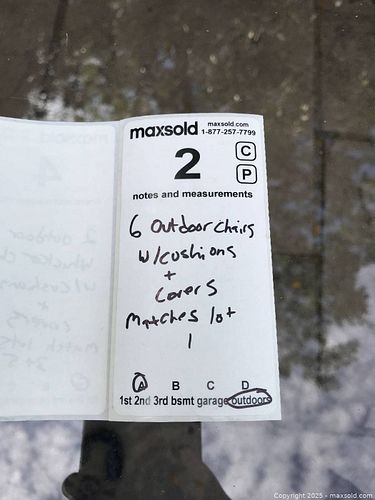 maxsold maxsold.com
1-877-257-7799
2 C
P
notes and measurements
6 Outdoor chairs
w/cushions
+
Covers
Matches lot
1
A B C D
1st 2nd 3rd bsmt garage outdoors
Copyright 2025 - maxsold.com